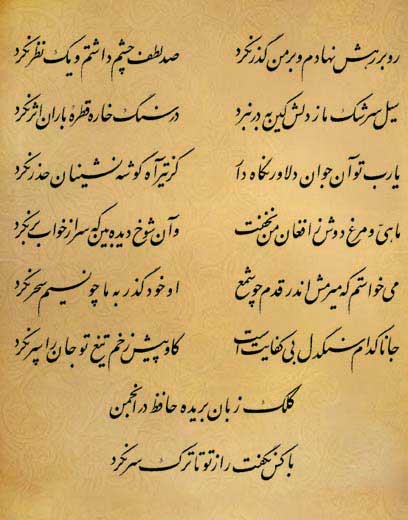 رو بر رهش نهادم و بر من گذر نکرد صد لطف چشم داشتم و یک نظر نکرد
سیل سرشک ما ز دلش کین به در نبرد در سنگ خاره قطرهٔ باران اثر نکرد
یارب تو آن جوان دلاور نگاه دار کز تیر آه گوشه نشینان حذر نکرد
ماهی و مرغ دوش ز افغان من نخفت وآن شوخ دیده بین که سر از خواب بر نکرد
می خواستم که میرمش اندر قدم چو شمع او خود گذر به ما چو نسیم سحر نکرد
جانا کدام سنگدل بی کفایت است کاو پیش زخم تیغ تو جان را سپر نکرد
کلک زبان بریده حافظ در انجمن
با کس نگفت راز تو تا ترک سر نکرد